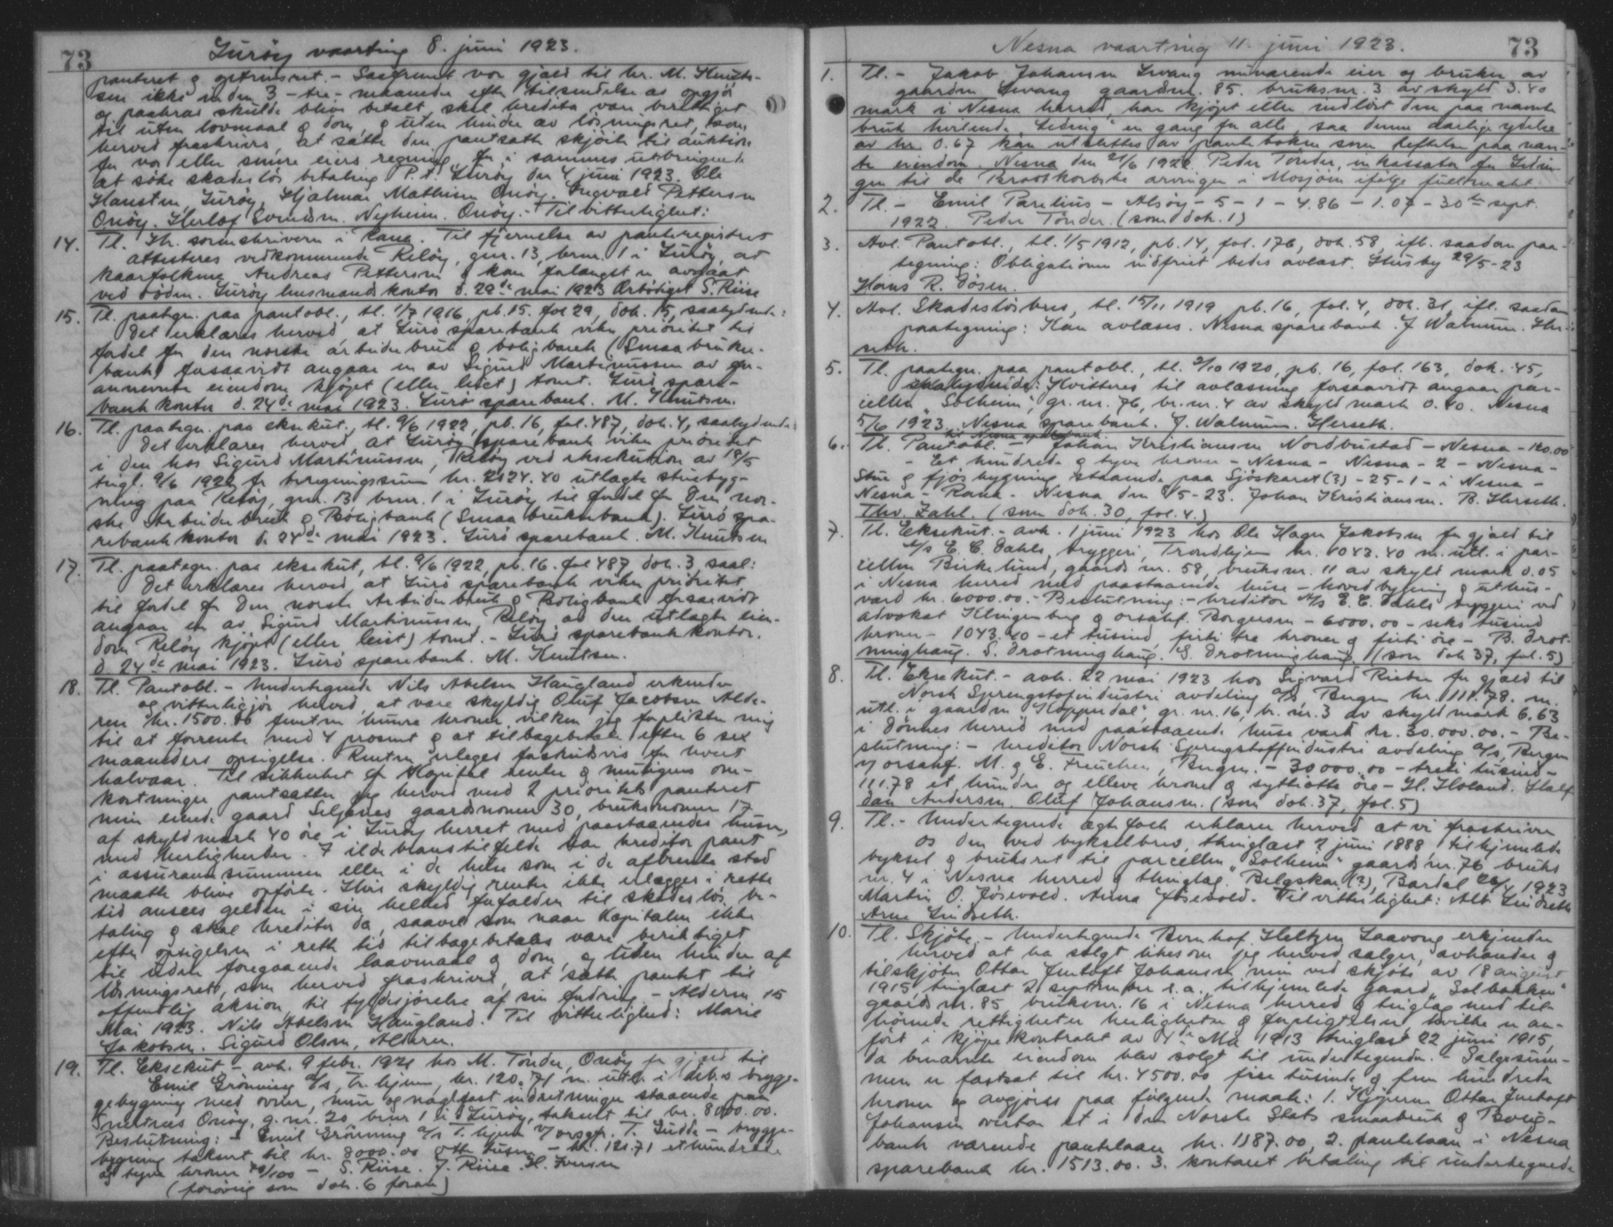 73
Lurøy vaarting 8. juni 1923.
panteret g opfriisret. - Saafremt vor gjæld til hr. M. Knut-
sen ikke inden 3 - tre - maaneder efter tilsendelse av opgjør
og paakrav skulde blive betalt skal kreditor være berettiget
til uten lovmaal g dom, g uten hinder av løsningsret, som
herved fraskrives, at sætte den pantsatte skjøit til auktion
for vor eller senere eiers regning, for i sammes utbringende
at søke skadesløs betaling P.t. Lurøy den 4 juni 1923. Ole
Hansten, Lurøy. Hjalmar Mathisen Onøy. Ingvald Pettersen
Onøy. Herlof Svendsen. Nyheim. Onøy. - Til vitterlighet:
14. Tl. Hr. sorenskriveren i Rana. Til fjernelse av pantregistret
attesteres vedkommende Reløy, gnr. 13, brnr. 1 i Lurøy, at
kaarfolkene Andreas Pettersen g kone forlængst er avgaat
ved døden. Lurøy lensmandskontor d. 29de mai 1923 Ærbødigst S. Riise
15. Tl. paategn. paa pantobl., tl. 1/7 1916, pb. 15. fol 29, dok. 15, saalydende:
Det erklæres herved, at Lurø sparebank viker prioritet til
fordel for den norske arbeiderbruk g boligbank (Smaabruker-
bank) forsaavidt angaar en av Sigurd Martinussen av for-
annævnte eiendom kjøpt (eller leiet) tomt. Lurø spare-
bank kontor d. 24de mai 1923. Lurø sparebank. M. Knutsen.
16. Tl. paategn. paa eksekut., tl. 9/6 1922, pb. 16, fol. 487, dok. 4, saalydende
Det erklæres herved, at Lurøy sparebank viker prioritet
i den hos Sigurd Martinussen, Reløy ved eksekution av 18/5
tingl. 9/6 1922 for beregningssum kr. 2124.40 utlagte stuebyg-
ning paa Reløy, gnr. 13 brnr. 1 i Lurøy til fordel for Den nor-
ske Arbeiderbruk g Boligbank (Smaabrukerbank). Lurø spa-
rebank kontor d. 24de mai 1923. Lurø sparebank. M. Knutsen
17. Tl. paategn. paa eksekut, tl. 9/6 1922, pb. 16. fol 487 dok. 3, saal:
Det erklæres herved, at Lurø sparebank viker prioritet
til fordel for Den norske Arbeiderbruk g Boligbank forsaavidt
angaar en av Sigurd Martinussen, Reløy av den utlagte eien-
dom Reløy kjøpt (eller leiet) tomt. - Lurø sparebankkontor.
d. 24de mai 1923. Lurø sparebank. M. Knutsen.
18. Tl. Pantobl. - Undertegnede Nils Abelsen Haugland erkjender
og vitterligjør herved, at være skyldig Oluf Jacobsen Alde-
ren kr. 1500.00 femten hundre kroner, vilken jeg forplikter mig
til at forrente med 4 prosent g at tilbagebetale efter 6 sex
maaneders opsigelse. Renten erlegges forskudsvis for hvert
halvaar. Til sikkerhet for Kapital renter g mutigens om-
kostninger pantsætter jeg herved med 2 prioritets panteret
min eiende gaard Seljenes gaardsnomer 30, bruksnomer 17
af skyldmark 40 øre i Lurøy herret med paastaaendes huser,
med herligheder. I ildebranstilfelde har kreditor pant
i assuransesummen eller i de huse som i de afbrente sted
maatte blive opførte. Hvis skyldig renter ikke erlægges i rette
tid ansees gelden i sin helhed forfalden til skadesløs be-
taling g skal kreditor da, saavel som naar Kapitalen ikke
efter opsigelsen i rett tid tilbagebetales være beriktiget
til uden foregaaende laavmaal g dom, og uden hinder af
løsningsrett, som herved fraskrives, at sætte pantet til
offentlig aksion, til fyldisjørelse af sin fordring. - Alderen 15
Mai 1923. Nils Abelsen Haugland. Til vitterlighed: Marie
Jakobsen. Sigurd Olsen, Alderen.
19. Tl. Eksekut. - avh. 9 febr. 1921 hos M. Tønder, Onøy for gjæld til
Emil Grønning A/S, Tr.hjem, kr. 120.71 m. utl. i deb.s brygge-
gebygning med ovner, mur og naglfast indretninger staaende paa
Onøy, g.nr. 20 brnr 1 i Lurøy, takseret til kr. 8000.00.
Beslutning: - Emil Grønning A/S T.hjem v/ orsagf. T. Lidde - brygge-
bygning takseret til kr. 8000.00 otte tusen - kr. 120.71 ethundrede
og tyve kroner 71/100 - S. Riise. J. Riise H. Iversen
(forøvrig som dok. 6 foran)
Nesna vaarting 11. juni 1923. 73
1. Tl. - Jakob Johansen Levang nuværende eier og bruker av
gaarden Levang gaardsnr. 85. bruksnr. 3 av skyld 3.40
mark i Nesna herred har kjøpt eller indløst den paa nævnte
bruk hvilende "Leding" en gang for alle, saa denne aarlige ydelse
av kr. 0.67 kan utslettes av pantebøken som heftelse paa nævn-
te eiendom. Nesna den 21/6 1922 Peder Tønder, inkassator for Ledin-
gen til de Brodtkorbske arvinger i Mosjøen ifølge fuldmakt.
2. Tl. - Emil Parelius - Alsøy - 5 - 1 - 4.86 - 1.07 - 30te sept.
1922 Peder Tønder. (som dok. 1)
3. Avl. Pantobl., tl. 1/5 1912, pb. 14, fol. 176, dok. 58, ifl. saadan paa-
tegning: Obligationen indfriet bedes avlæst. Husby 29/5-23
Hans R. Døsen.
4. Avl. Skadesløsbrev, tl. 15/11 1919 pb. 16, fol. 4, dok. 31, ifl. saadan
paategning: Kan avlæses. Nesna sparebank. J Walnum. Her-
seth.
5. Tl. paategn. paa pantobl., tl. 2/10 1920, pb. 16, fol. 163, dok. 45,
saalydende: Kvitteres til avlæsning forsaavidt angaar par-
cellen "Solheim", gr. nr. 76, br. nr. 4 av skyld mark 0.40. Nesna
5/6 1923. Nesna sparebank. J. Walnum. Herseth.
6. Tl. Pantobl. - Johan Kristiansen Nordbustad - Nesna - 120.00
- Et hundrede g tyve kroner - Nesna - Nesna - 2 - Nesna -
Stue g fjøsbygning staaende paa Sjøskaret (?) - 25 - 1 - i Nesna -
Nesna - Rana - Nesna den 8/5-23. Johan Kristiansen. B. Herseth.
Thv. Zahl. (som dok. 30, fol. 4.)
7. Tl. Eksekut. - avh. 1 juni 1923 hos Ole Hagen Jakobsen for gjæld til
A/S E. C. Dahls bryggeri, Trondhjem kr. 1043.40 m. utl. i par-
cellen Birkelund, gaards nr. 58, bruksnr. 11 av skyld mark 0.05
i Nesna herred med paastaaende huse - hovedbygning g uthus -
værd kr. 6000.00. - Beslutning: - kreditor A/S E. C. Dahls bryggeri ved
advokat Klingenberg g orsakf. Borgersen - 6000.00 - seks tusind
kroner - 1043.40 - et tusind, firti tre kroner g firti øre - B. Drot-
ninghaug. S. Drotninghaug. S. Drotninghaug. (som dok 37, fol. 5)
8. Tl. Eksekut. - avh. 22 mai 1923 hos Sigvard Risten for gjæld til
Norsk Sprengstofindustri avdeling A/S Bergen kr. 111.78. m.
utl. i gaarden "Kopperdal", gr. nr. 16, br. nr. 3 av skyld mark 6.63
i Dønnes herred med paastaaende huse værd kr. 30.000.00. - Be-
slutning: - kreditor Norsk Sprengstoffindustri avdeling A/S, Bergen
v/ orsakf. M. g E. Freuchen, Bergen. - 30000.00 - treti tusind -
111.78 et hundre og elleve kroner g syttiotte øre - H. Holand. Half-
dan Andersen. Oluf Johansen. (som dok. 37, fol. 5)
9. Tl. - Undertegnede ægtefolk erklærer herved at vi fraskriver
os den ved bykselbrev, thinglæst 2 juni 1888 tilhjemlede
byksel g bruksret til parcellen "Solheim" gaards nr. 76 bruks
nr. 4 i Nesna herred g thinglag. Belgskar (?), Bardal 26/4 1923
Martin O. Jøsevold. Anna Jøsevold. Til vitterlighet: Alb Lindseth
Arne Lindseth.
10. Tl. Skjøte. - Undertegnede Bernhof Heltzen Saavong erkjender
herved at ha solgt likesom jeg herved sælger, avhænder g
tilskjøter Ottar Jentoft Johansen min ved skjøte av 18 august
1915 tinglæst 2 september s.a. tilhjemlede gaard "Solbakken"
gaards nr. 85 bruksnr. 16 i Nesna herred g tinglag med til-
hørende rettigheter herligheter g forpligtelser, hvilke er an-
ført i kjøpekontrakt av 4de Mai 1913 tinglæst 22 juni 1915,
da benævnte eiendom blev solgt til undertegnede. Salgssum-
men er fastsat til kr. 4500.00 fire tusinde g fem hundrede
kroner og avgjøres paa følgende maate: 1. Kjøperen Ottar Jentoft
Johansen overtar et i den Norske Stats smaabruk g Bolig-
bank værende pantelaan kr. 1187.00, 2. pantelaan i Nesna
sparebank kr. 1513.00. 3. kontant betaling til undertegnede